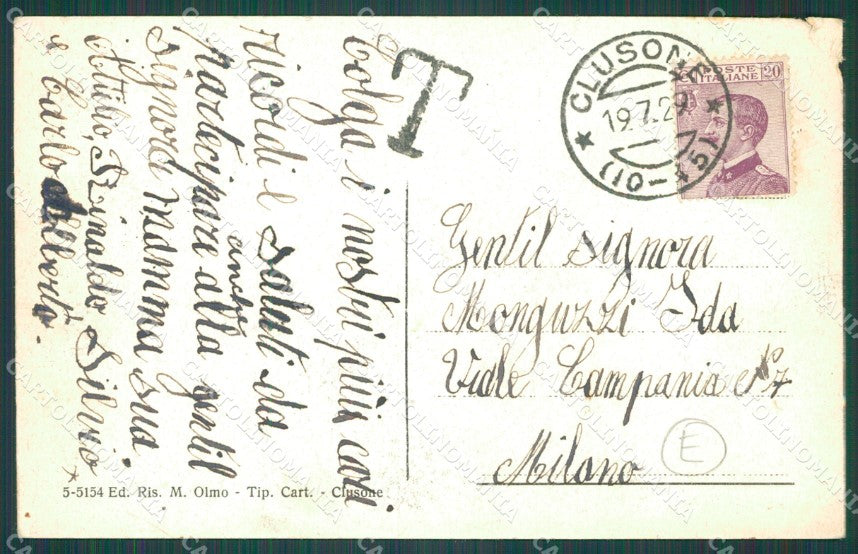 Colga i nostri più cari
ricordi e saluti da
anche
partecipare alla gentil
signora mamma sua
Attilio, Rinaldo, Silvio
e Carlo Alberto.
T
CLUSONE
19.7.29
(10-45)
POSTE ITALIANE 20
Gentil signora
Monguzzi Ida
Viale Campania N° 7
Milano
E
5-5154 Ed. Ris. M. Olmo - Tip. Cart. - Clusone
CARTOLINOMANIA